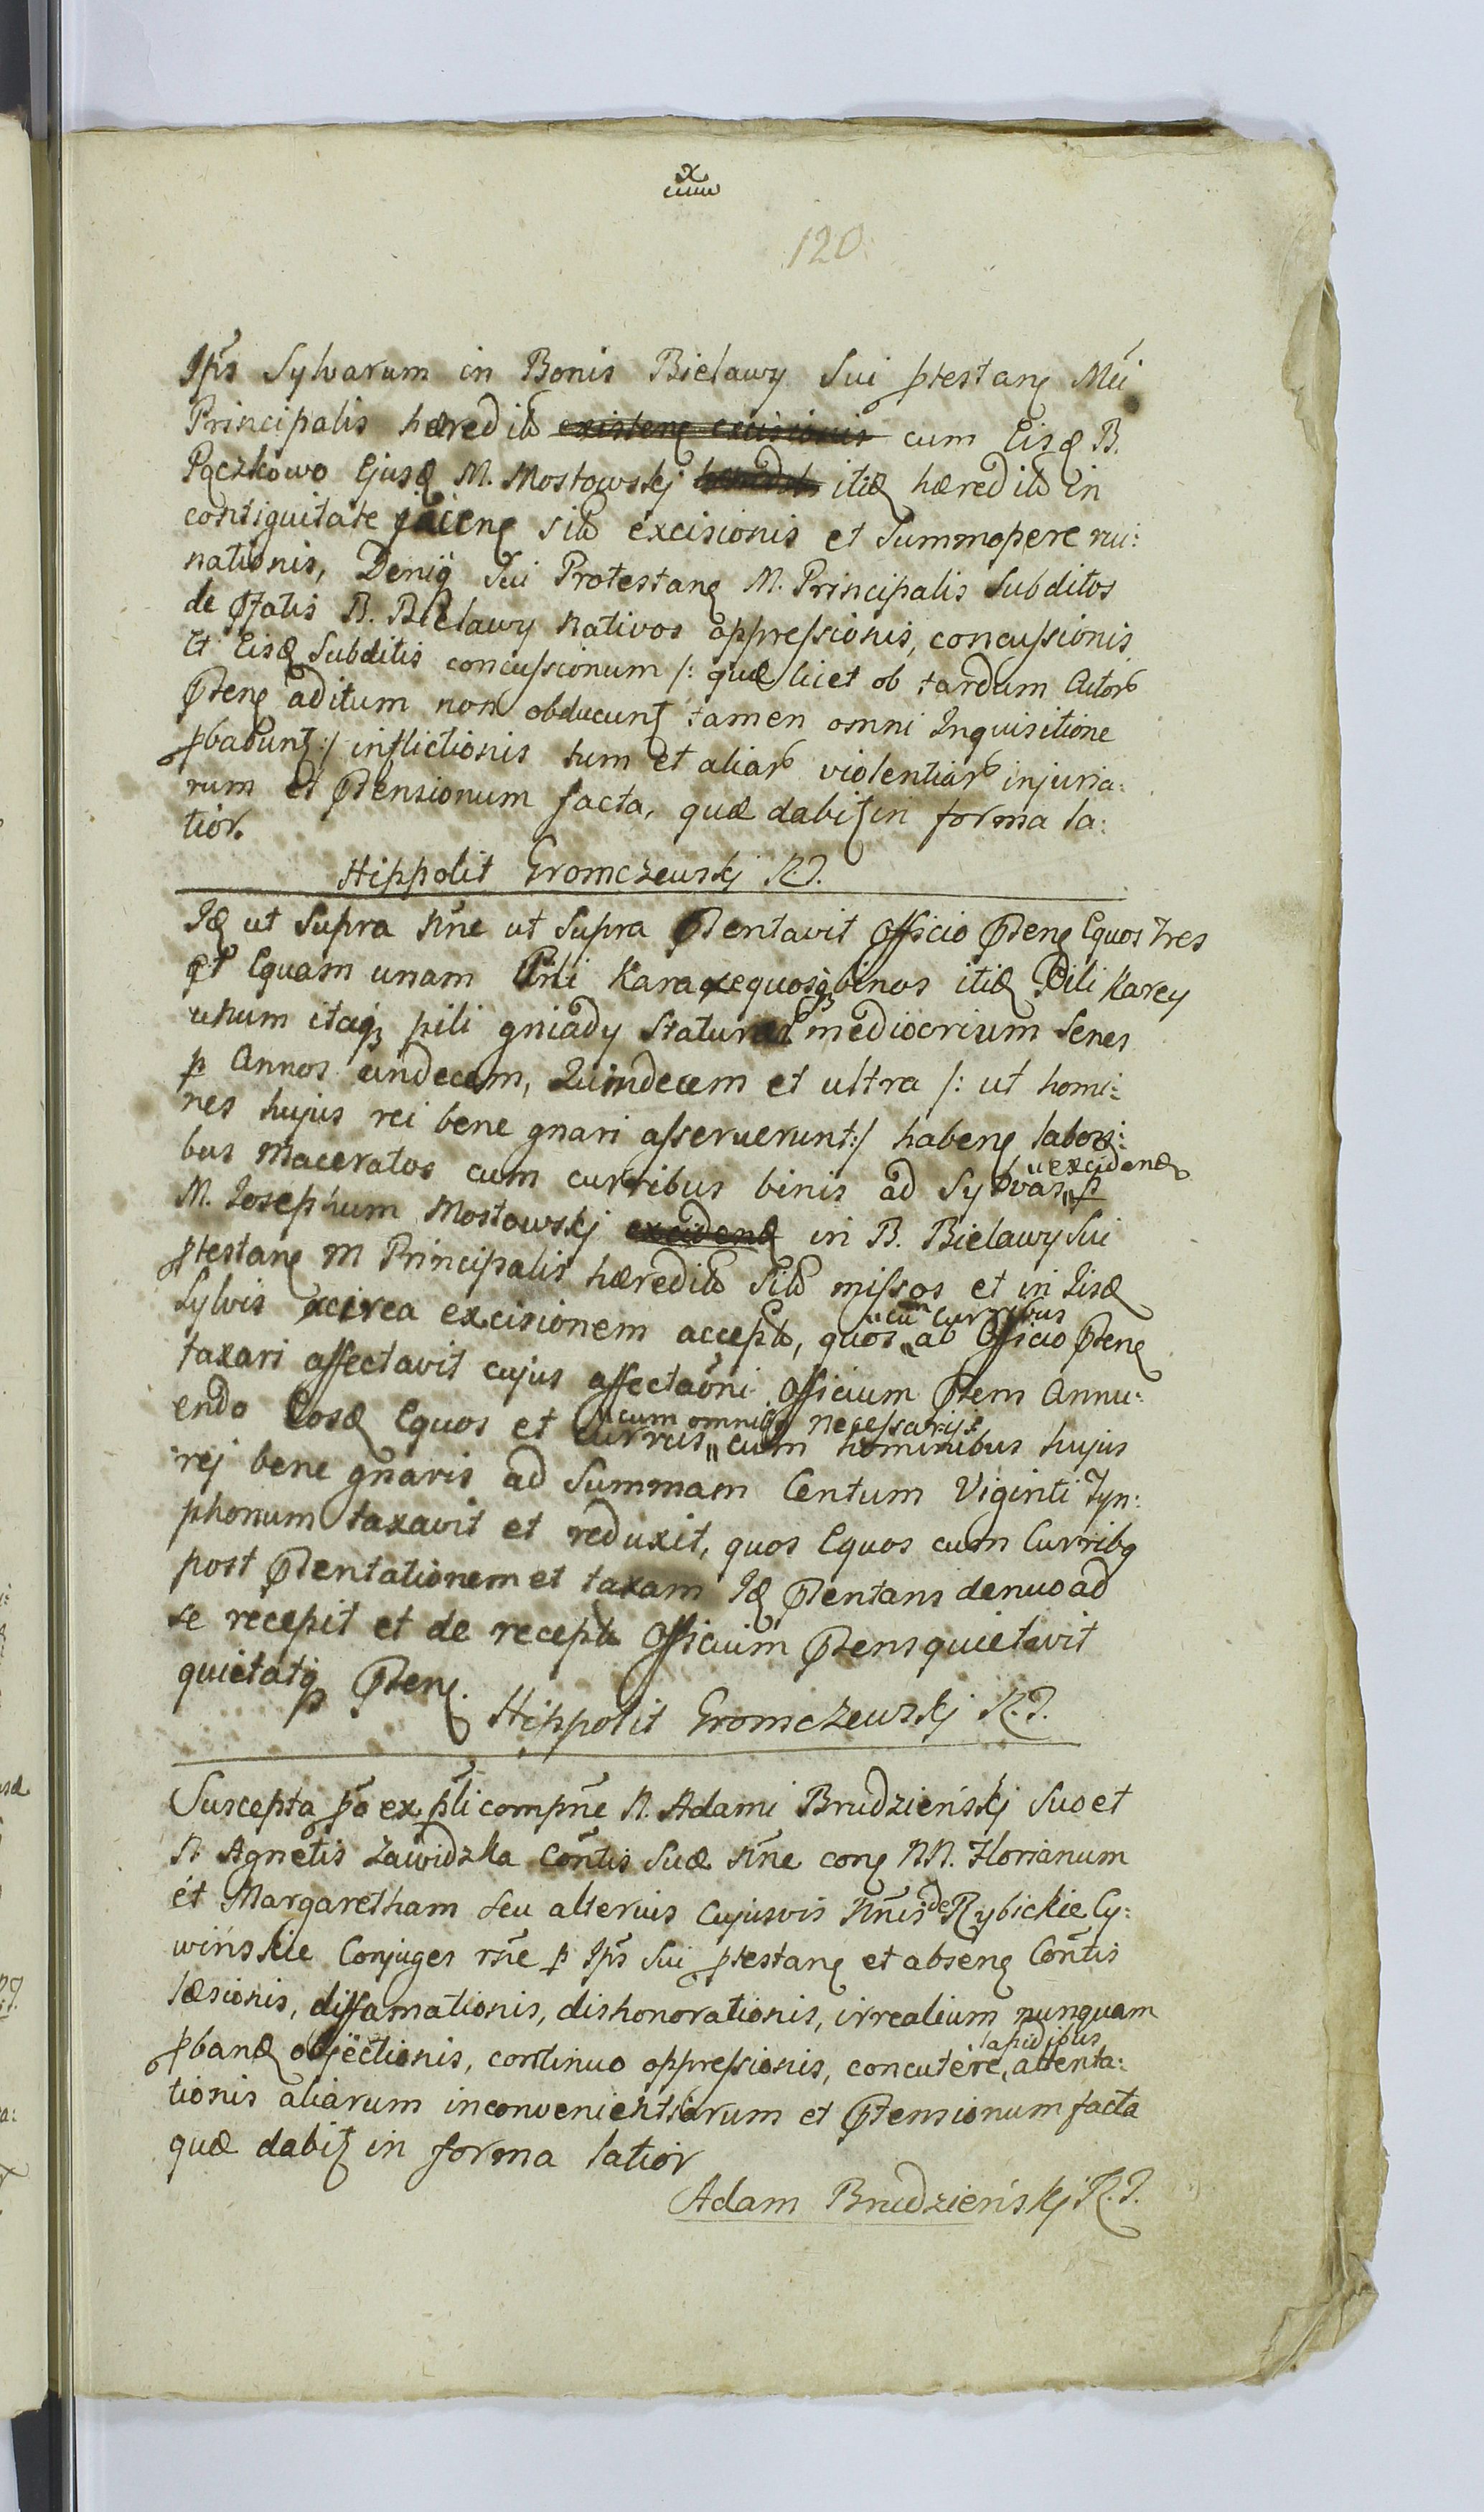 120
Ips Sylvarum in Bonis Bielawy Sui ptestanę Mci
Principalis hæredit cum Eisd B.
Pączkowo Ejusd M. Mostowskj itid hæredit in
contiguitate jacenę sit excisionis et Summopere rui:
nationis, Deniq Sui Protestanę M. Principalis Subditos
de ptatis B. Bielawy nativos oppressionis, concussionis
Et Eisd Subditis concussionum /: quæ licet ob tardum Actor
ptenę aditum non obducunt tamen omni Inquisitione
pbabunt :/ inflictionis tum et aliar violentiar injuria:
rum et ptensionum facta, quæ dabit in forma la:
tior.
Hippolit Gromczewskj R.T.
Id ut Supra Nne ut Supra ptentavit Officio ptenę Equos tres
et Equam unam Pili Kara equosq binos itid Pili Karey
unum itaq pili gniady Staturæ mediocrium Senes
p Annos undecem, Quindecem et ultra /: ut homi:
nes hujus rei bene gnari asseruerunt :/ habenę labori:
bus maceratos cum curribus binis ad Sylvas „ excidend „ p
M. Josephum Mostowskj excidend in B. Bielawy Sui
ptestanę M Principalis hæredit sit missos et in Iisd
Sylvis circa excisionem accept, quos „ cum curribus „ ab Officio ptenę
taxari affectavit cujus affectaoni Officium ptens Annu:
endo Eosd Equos et currus „ cum omnibq necessarijs „ cum hominibus hujus
rej bene gnaris ad Summam Centum Viginti Tyn:
phonum taxavit et reduxit, quos Equos cum Curribq
post ptentationem et taxam Id ptentans denuo ad
se recepit et de recept Officium ptens quietavit
quietatq ptenę.
Hippolit Gromczewskj R.T.
Suscepta pa ex pli compne N. Adami Brudzieńskj Suo et
N Agnetis Zawidzka Contis Suæ Nne conę NN. Florianum
et Margaretham seu alterius Cujusvis Nnis de Rybickie Cy:
wińskie Conjuges rne p Ips Sui ptestanę et absenę Contis
læsionis, diffamationis, dishonorationis, irrealium nunquam
pband objectionis, continuo oppressionis, concutere, lapidibus attenta:
tionis aliarum inconvenientiarum et ptensionum facta
quæ dabit in forma latior
Adam Brudzieńskj R.T.